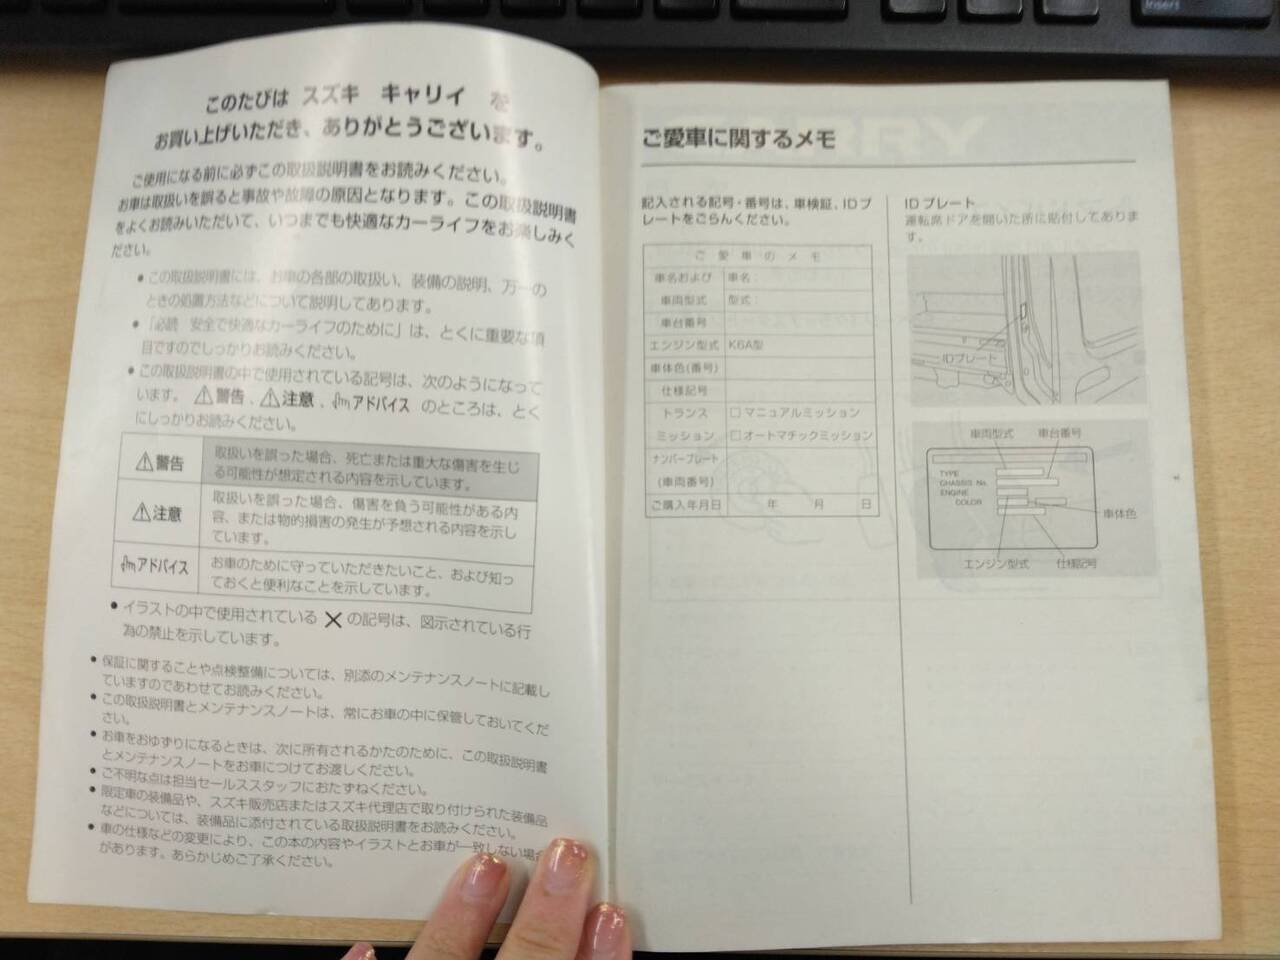 Insert
このたびは スズキ キャリイ を
お買い上げいただき、ありがとうございます。
ご使用になる前に必ずこの取扱説明書をお読みください。
お車は取扱いを誤ると事故や故障の原因となります。この取扱説明書
をよくお読みいただいて、いつまでも快適なカーライフをお楽しみく
ださい。
● この取扱説明書には、お車の各部の取扱い、装備の説明、万一の
ときの処置方法などについて説明してあります。
● 「必読 安全で快適なカーライフのために」は、とくに重要な項
目ですのでしっかりお読みください。
● この取扱説明書の中で使用されている記号は、次のようになって
います。⚠警告、⚠注意、アドバイス のところは、とく
にしっかりお読みください。
⚠警告
取扱いを誤った場合、死亡または重大な傷害を生じ
る可能性が想定される内容を示しています。
⚠注意
取扱いを誤った場合、傷害を負う可能性がある内
容、または物的損害の発生が予想される内容を示し
ています。
アドバイス
お車のために守っていただきたいこと、および知っ
ておくと便利なことを示しています。
● イラストの中で使用されている ✕ の記号は、図示されている行
為の禁止を示しています。
● 保証に関することや点検整備については、別添のメンテナンスノートに記載し
ていますのであわせてお読みください。
● この取扱説明書とメンテナンスノートは、常にお車の中に保管しておいてくだ
さい。
● お車をおゆずりになるときは、次に所有されるかたのために、この取扱説明書
とメンテナンスノートをお車につけてお渡しください。
● ご不明な点は担当セールススタッフにおたずねください。
● 限定車の装備品や、スズキ販売店またはスズキ代理店で取り付けられた装備品
などについては、装備品に添付されている取扱説明書をお読みください。
● 車の仕様などの変更により、この本の内容やイラストとお車が一致しない場合
があります。あらかじめご了承ください。
ご愛車に関するメモ
記入される記号・番号は、車検証、IDプ
レートをごらんください。
ご愛車のメモ
車名および 車名：
車両型式 型式：
車台番号
エンジン型式 K6A型
車体色(番号)
仕様記号
トランス □マニュアルミッション
ミッション □オートマチックミッション
ナンバープレート
(車両番号)
ご購入年月日 年 月 日
IDプレート
運転席ドアを開いた所に貼付してありま
す。
IDプレート
車両型式 車台番号
TYPE
CHASSIS No.
ENGINE
COLOR
車体色
エンジン型式 仕様記号